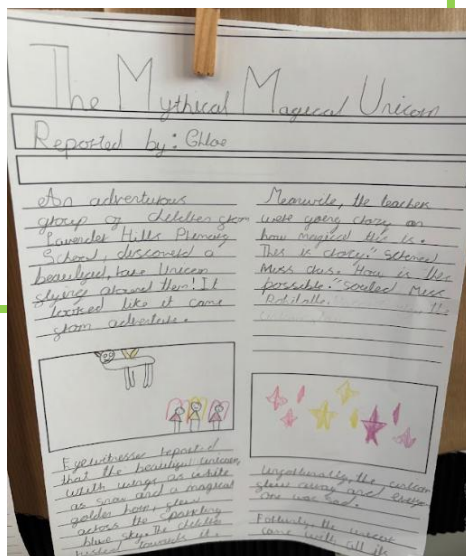 The Mythical Magical Unicorn
Reported by: Chloe
An adventurous
group of children from
Lavender Hills Primary
School, discoverd a
beautiful, rare Unicorn
flying around them! It
looked like it came
from
Eyewitnesses reported
that the beautiful unicorn,
with wings as white
as snow and a magical
golden horn, flew
across the sparkling
blue sky. The children
towards the
Meanwile, the teachers
were going crazy on
how magical this is.
This is crazy!
Miss How is this
possible! Miss
Unfortionatly, the unicorn
flew away and every
one was sad.
the unicorn
came with all